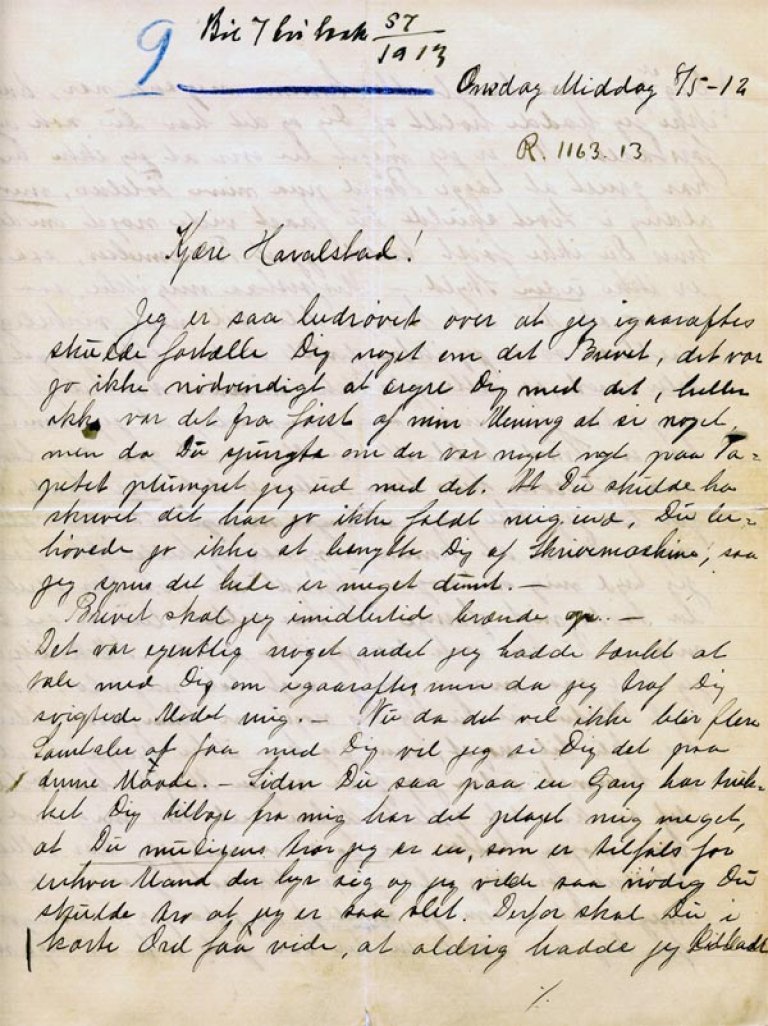 9
57
1913
Onsdag Middag 8/5-12
R. 1163. 13
Kjære Havalstad!
Jeg er saa bedrøvet over at jeg igaaraftes
skulde fortælle Dig noget om det Brevet, det var
jo ikke nødvendigt at ærgre Dig med det, heller
ikke var det fra først af min Mening at si noget,
men da Du spurgte om der var noget nyt paa Ta=
petet plumpet jeg ud med det. At Du skulde ha
skrevet det har jo ikke faldt mig ind, Du be=
høvede jo ikke at benytte Dig af Skrivemaskine, saa
jeg synes det hele er meget dumt. —
Brevet skal jeg imidlertid brænde op. —
Det var egentlig noget andet jeg hadde tænkt at
tale med Dig om igaaraftes men da jeg traf Dig
svigtede Modet mig. — Nu da det vel ikke blir flere
Samtaler at faa med Dig vil jeg si Dig det paa
denne Maade. — Siden Du saa paa en Gang har truk=
ket Dig tilbage fra mig har det plaget mig meget,
at Du muligens tror jeg er en, som er tilfals for
enhver Mand der byr sig og jeg vilde saa nødig Du
skulde tro at jeg er saa slet. Derfor skal Du i
korte Ord faa vide, at aldrig hadde jeg
%